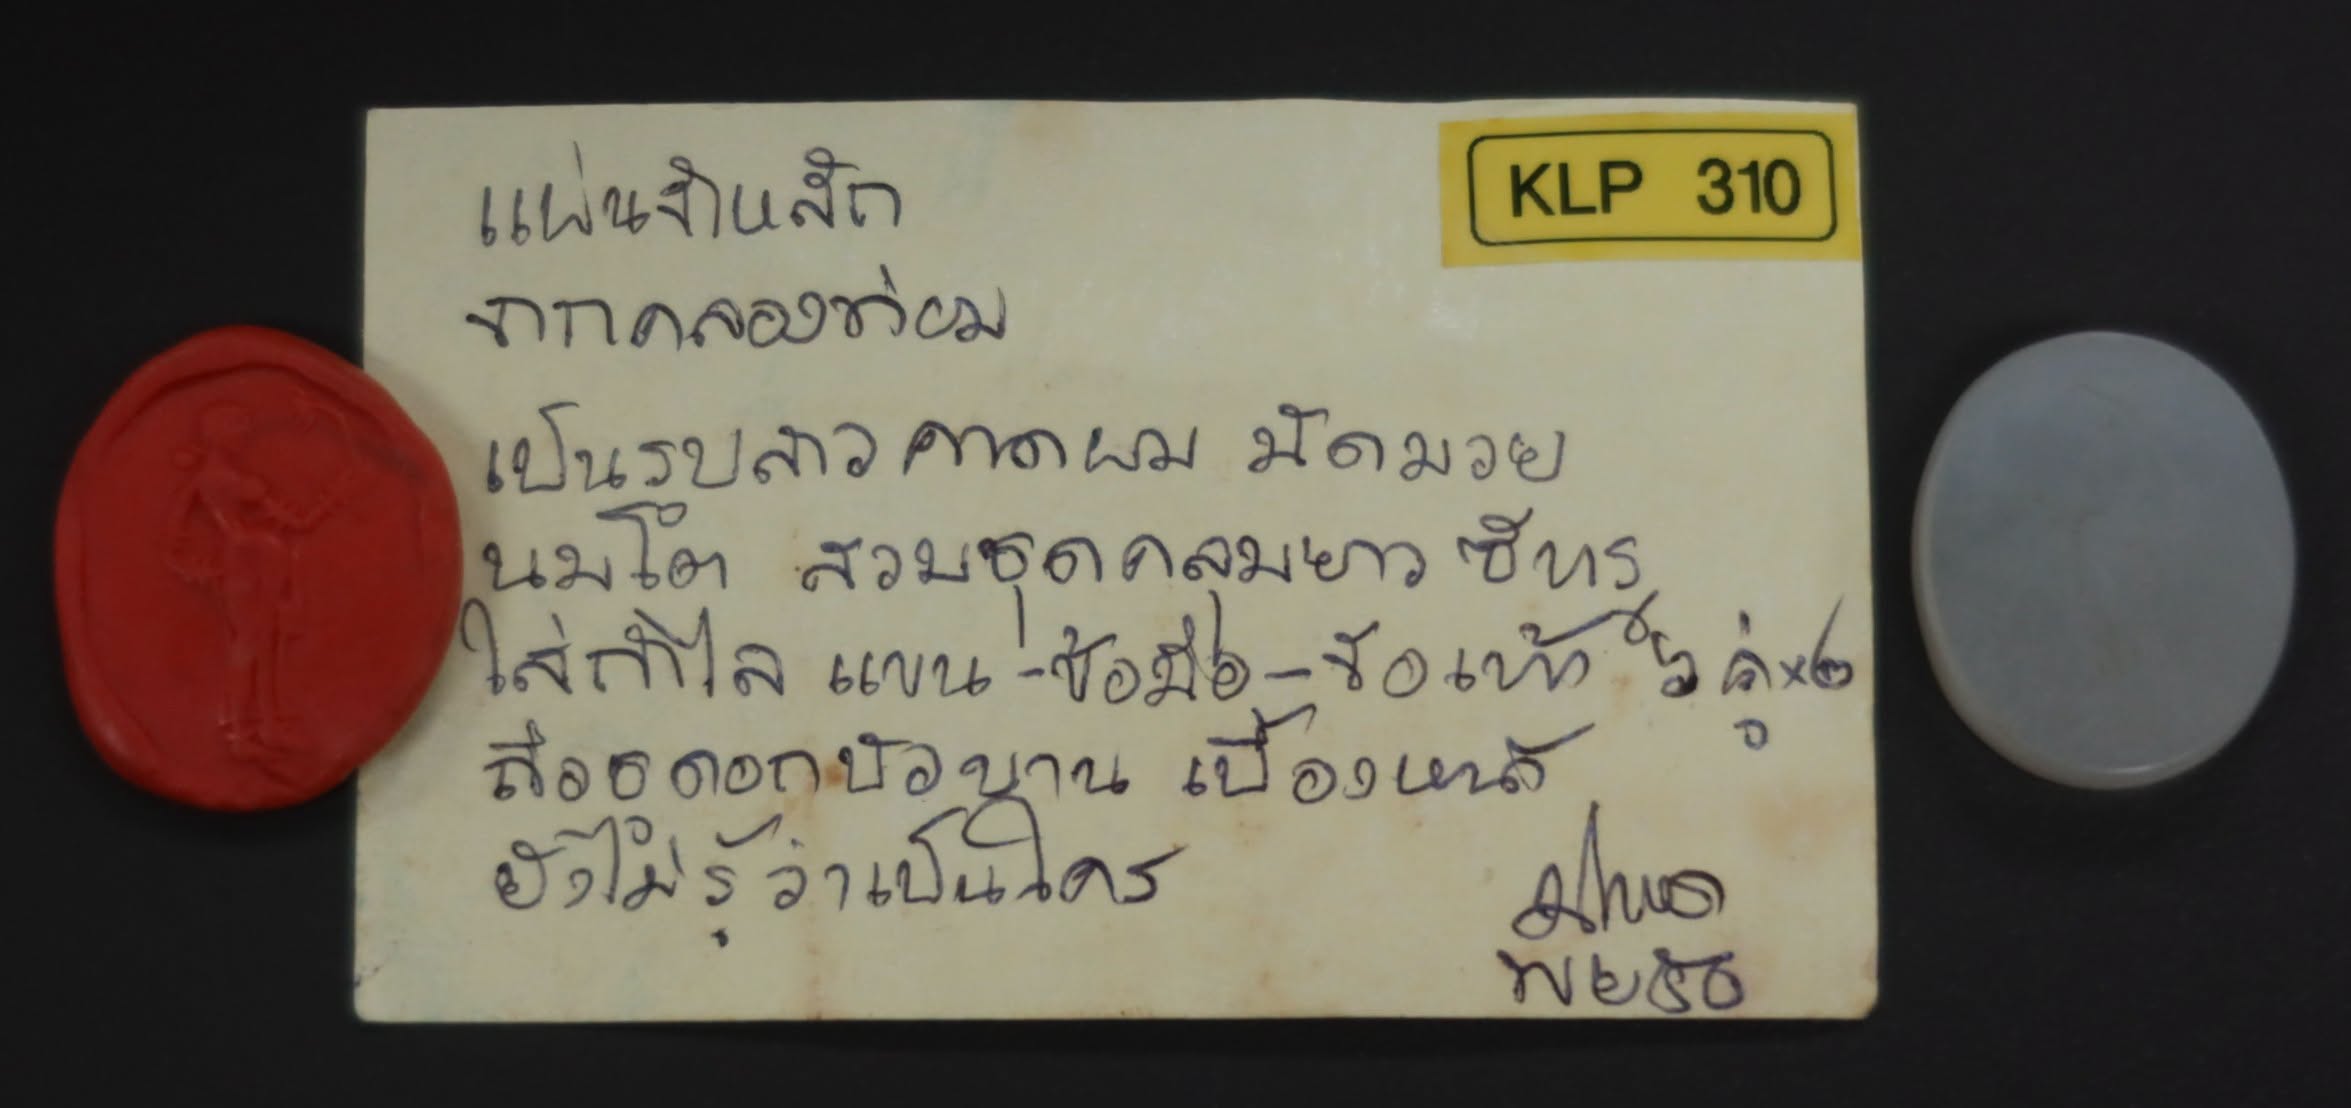 KLP 310
แผ่นจำหลัก
จากคลองท่อม
เป็นรูปสาวคาดผม มัดมวย
นมโต สวมชุดคลุมยาว ซีทรู
ใส่กำไล แขน-ข้อมือ-ข้อเท้า คู่x๒
ถือธดอกบัวบาน เบื้องหน้า
ยังไม่รู้ว่าเป็นใคร